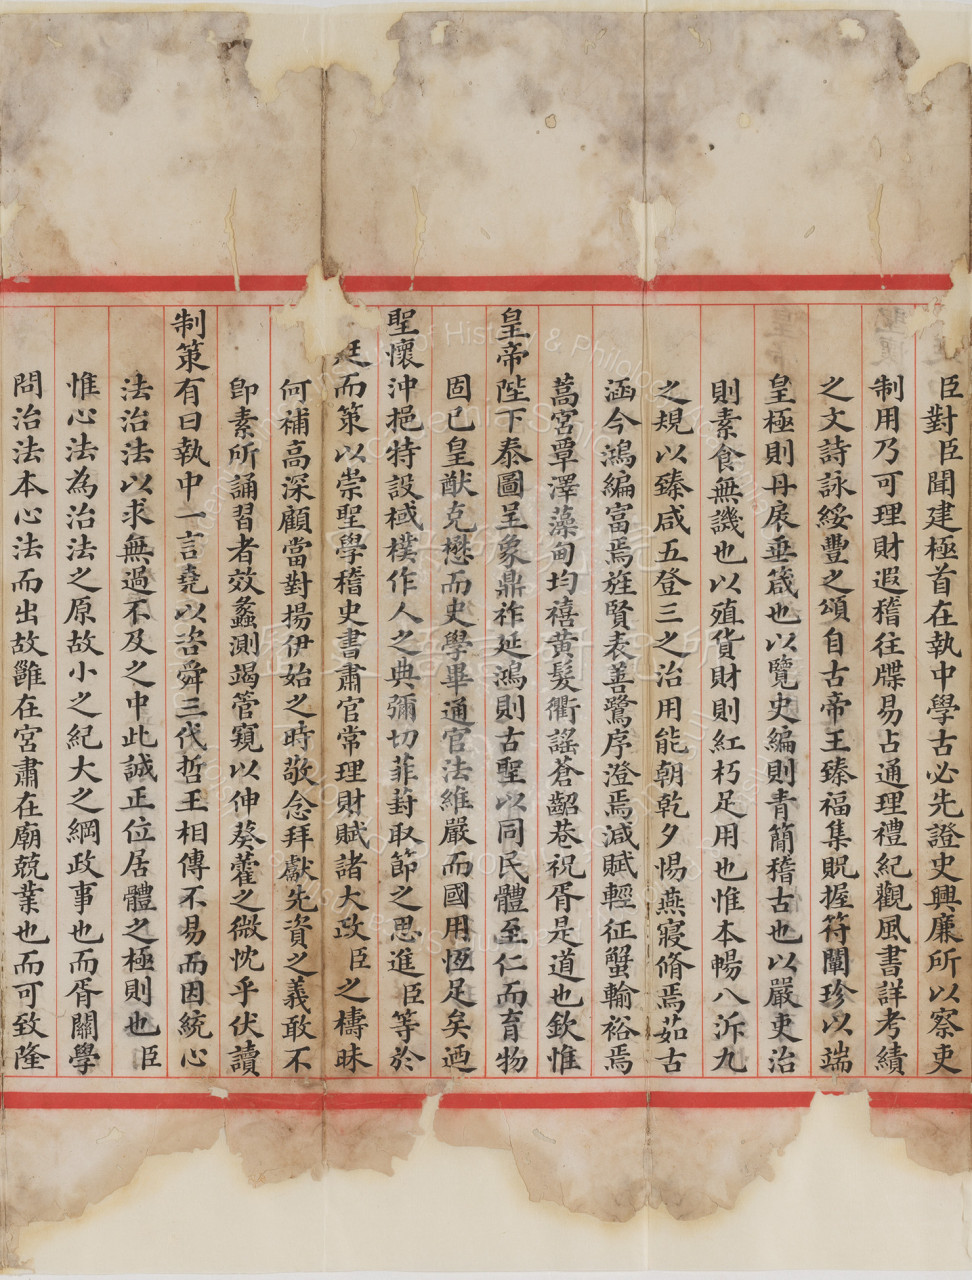 臣對臣聞建極首在執中學古必先證史興廉所以察吏
制用乃可理財遐稽往牒易占通理禮紀觀風書詳考績
之文詩詠綏豐之頌自古帝王臻福集貺握符闡珍以端
皇極則丹扆垂箴也以覽史編則青簡稽古也以嚴吏治
則素食無譏也以殖貨財則紅朽足用也惟本暢八泝九
之規以臻咸五登三之治用能朝乾夕惕燕寢脩焉茹古
涵今鴻編富焉旌賢表善鷺序澄焉減賦輕征蟹輸裕焉
蒿宮覃澤藻甸均禧黃髮衢謠蒼齠巷祝胥是道也欽惟
皇帝陛下泰圖呈象鼎祚延鴻則古聖以同民體至仁而育物
固已皇猷克懋而史學畢通官法維嚴而國用恆足矣迺
聖懷沖挹特設棫樸作人之典彌切菲葑取節之思進臣等於
廷而策以崇聖學稽史書肅官常理財賦諸大政臣之檮昧
何補高深顧當對揚伊始之時敬念拜獻先資之義敢不
卽素所誦習者效蠡測竭管窺以伸葵藿之微忱乎伏讀
制策有曰執中一言堯以咨舜三代哲王相傳不易而因統心
法治法以求無過不及之中此誠正位居體之極則也臣
惟心法為治法之原故小之紀大之綱政事也而胥關學
問治法本心法而出故雝在宮肅在廟兢業也而可致隆